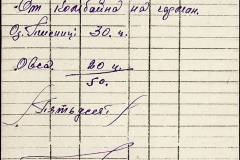 От комбайна на гарман.
Оз. Пшениц: 30. ч.
Овса. 20 ч.
50.
/Пятьдесят/